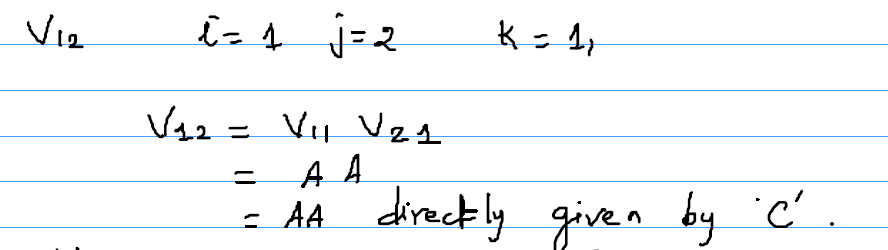 V12 i = 1 j = 2 k = 1,
V12 = V11 V21
= A A
= AA directly given by 'C'.